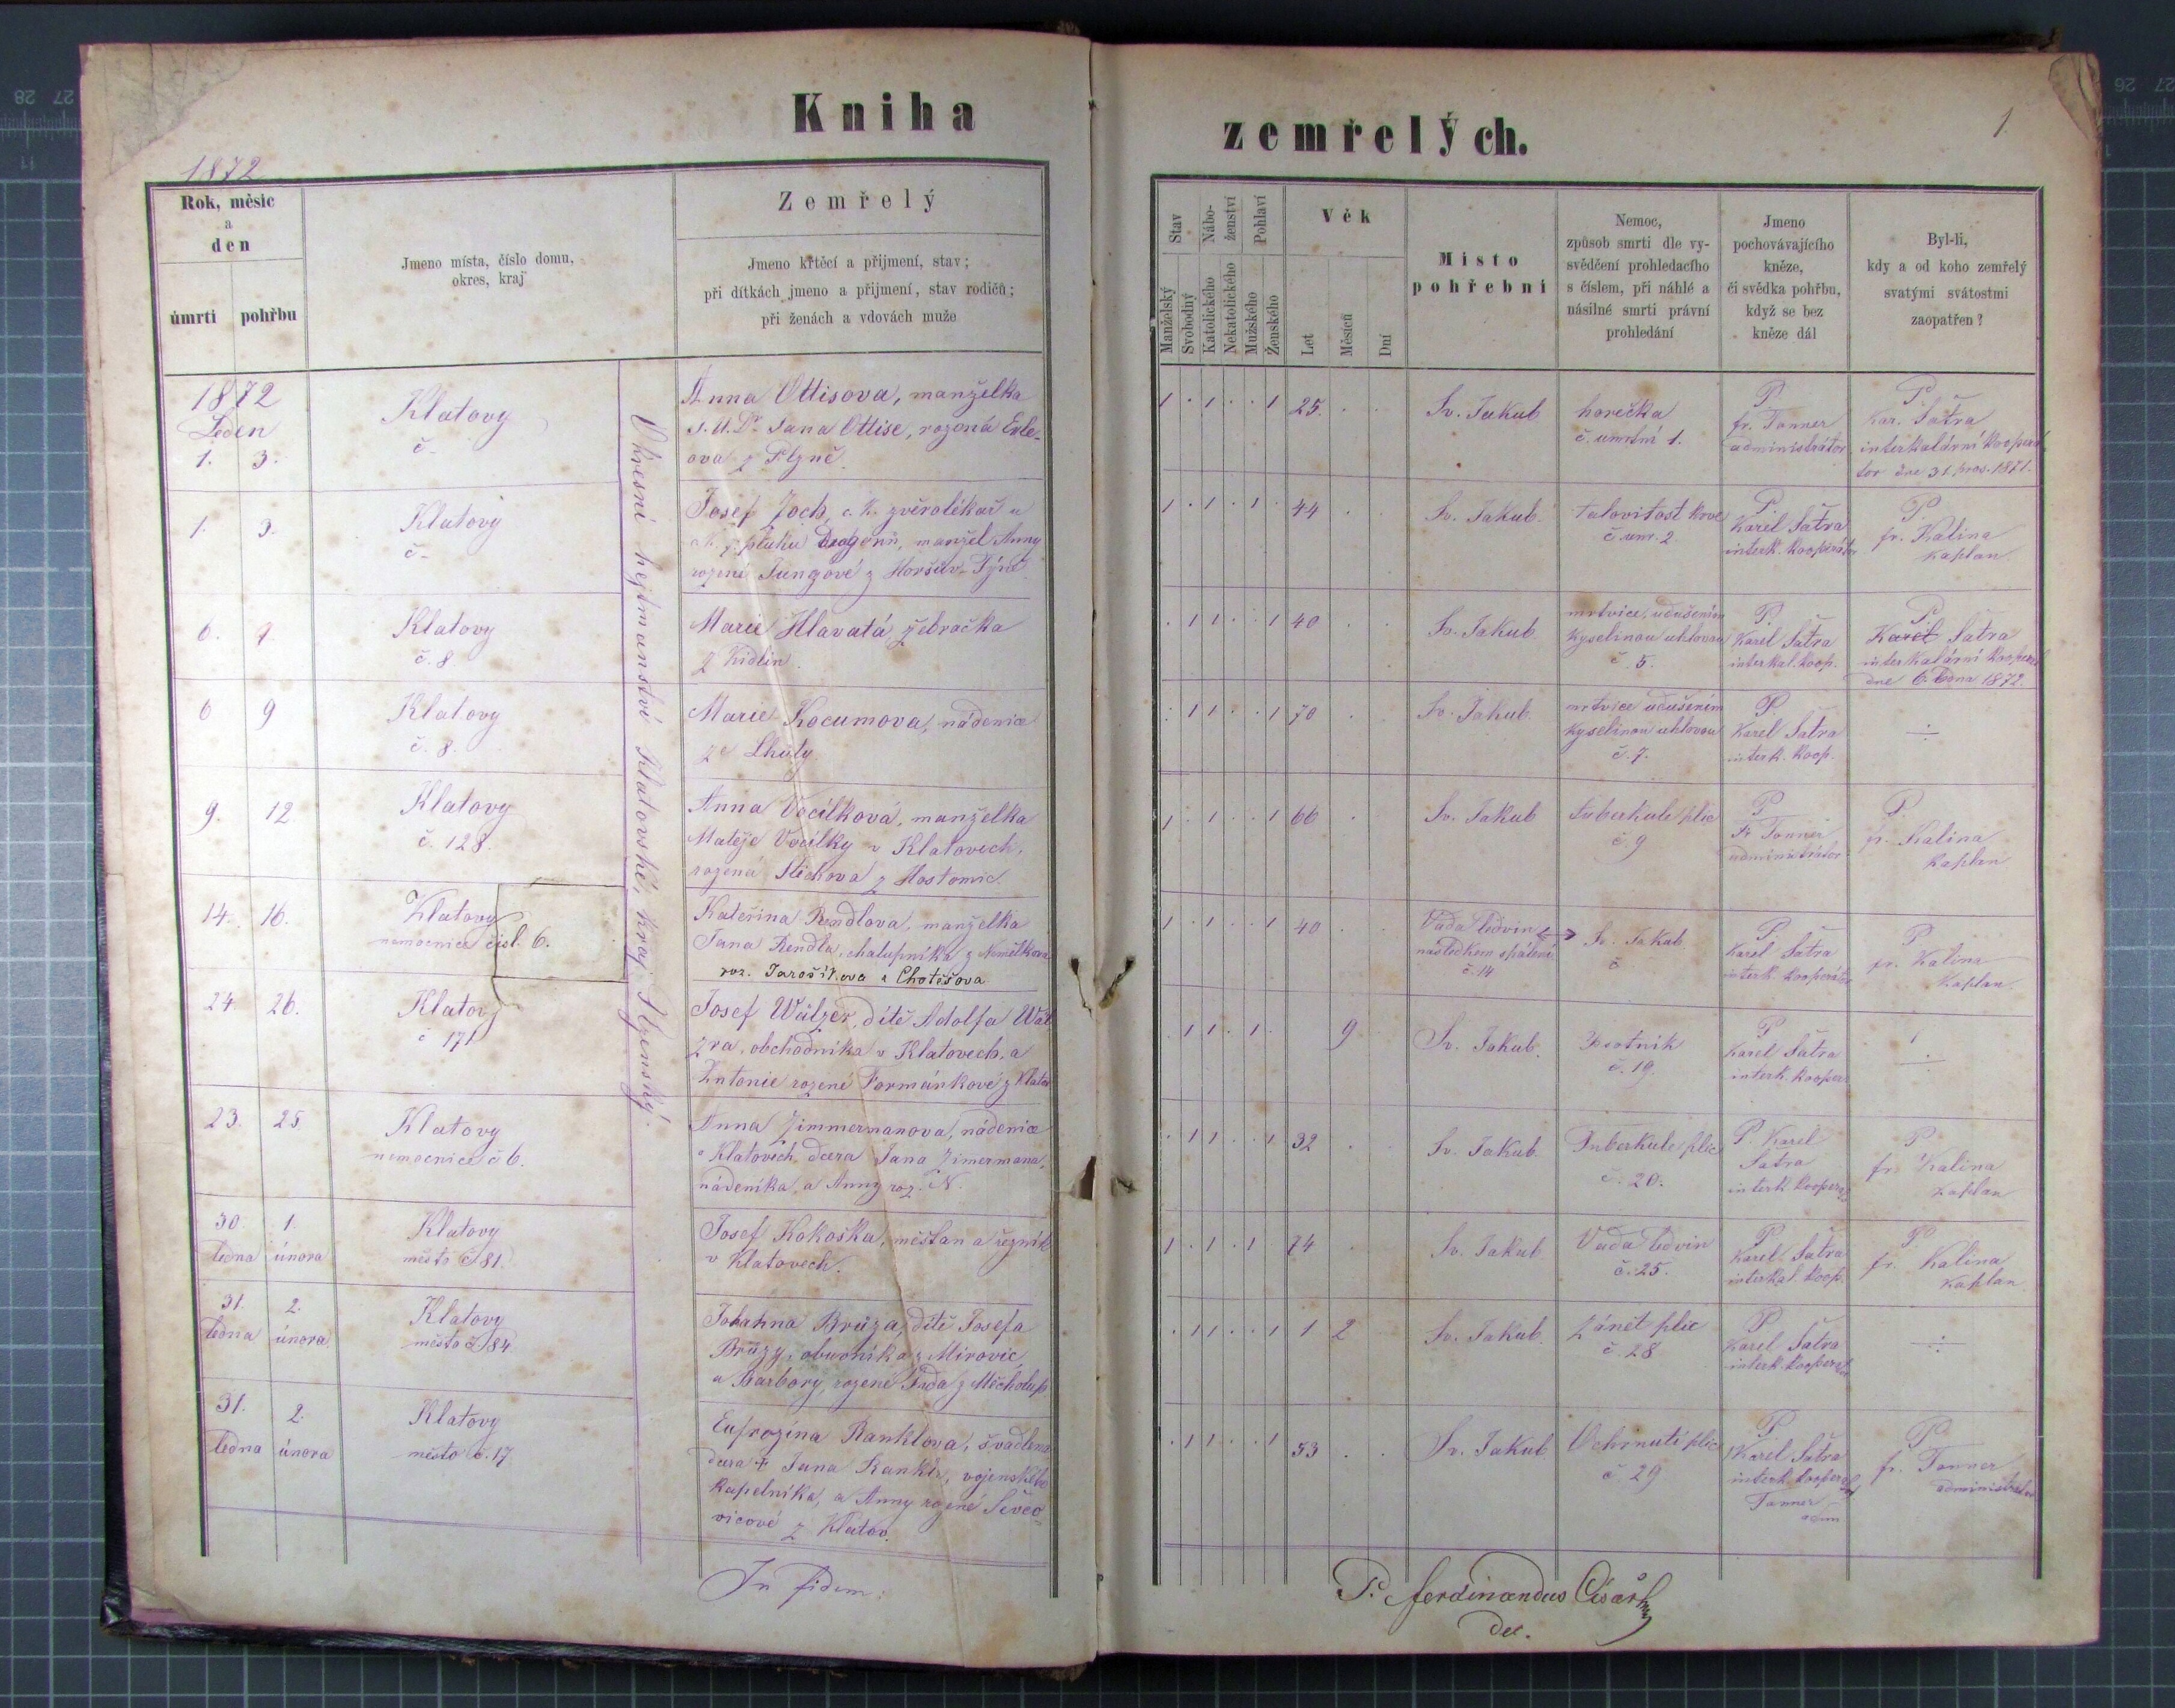 Kniha
zemřelých.
1
1872
Rok, měsíc
a
den
úmrtí pohřbu
Jmeno místa, číslo domu,
okres, kraj
Zemřelý
Jmeno křtěcí a přijmení, stav;
při dítkách jmeno a přijmení, stav rodičů;
při ženách a vdovách muže
Stav
Nábo-
ženství
Pohlaví
Manželský
Svobodný
Katolického
Nekatolického
Mužského
Ženského
Věk
Let
Měsíců
Dní
Místo
pohřební
Nemoc,
způsob smrti dle vy-
svědčení prohledacího
s číslem, při náhlé a
násilné smrti právní
prohledání
Jmeno
pochovávajícího
kněze,
či svědka pohřbu,
když se bez
kněze dál
Byl-li,
kdy a od koho zemřelý
svatými svátostmi
zaopatřen?
Okresní hejtmanství Klatovské, kraj Plzenský.
1872
Leden
1. 3.
Klatovy
č.-
Anna Ottisova, manželka
J. U. Dr. Jana Ottise, rozená
ova z Plzně.
1 . 1 . . 1 25. . .
Sv. Jakub
horečka
č. umrtní 1.
P.
fr. Tonner
administrátor
P.
Kar. Šatra
interkalární kooperá
tor dne 31. pros. 1871.
1. 3.
Klatovy
č-
Josef Zoch, c. k. zvěrolékař u
pluku Dragonů, manžel Anny
rozené Jungové z Horšův-Týna
1 . 1 . 1 . 44 . .
Sv. Jakub.
talovitost krve
č. umr. 2.
P.
Karel Šatra
interk. kooperátor
P
fr. Kalina
kaplan.
6. 9.
Klatovy
č. 8
Marie Hlavatá, žebračka
z Kidlin.
. 1 1 . . 1 40 . .
Sv. Jakub
mrtvice, udušením
kyselinou uhlovou
č. 5.
P.
Karel Šatra
interkal. koop.
P.
Karel Šatra
interkalární kooper.
dne 6. ledna 1872.
6 9
Klatovy
č. 8.
Marie Kocumova, nádenice
ze Lhůty.
. 1 1 . . 1 70 . .
Sv. Jakub.
mrtvice udušením
kyselinou uhlovou
č. 7.
P.
Karel Šatra
interk. koop.
÷
9. 12
Klatovy
č. 128.
Anna Vocílková, manželka
Matěje Vocílky v Klatovech,
rozená Stichova z Hostomic.
1 . 1 . . 1 66 .
Sv. Jakub
Tuberkule plic
č. 9
P
Fr Tonner
administrátor
P.
fr. Kalina
kaplan
14. 16.
Klatovy
nemocnice čísl. 6.
Kateřina Rendlova, manželka
Jana Rendla, chalupníka z Nemělkova
roz. Jarošíkova z Chotěšova
1 . 1 . . 1 40 . .
Vada ledvin
následkem spálení
č. 14
Sv. Jakub
č
P
Karel Šatra
interk. kooperátor
P
fr. Kalina
kaplan.
24. 26.
Klatovy
č 171
Josef Wälzer, dítě Adolfa Wäl
zra, obchodníka v Klatovech, a
Antonie rozené Formánkové z Klatov
. 1 1 . 1 . 9
Sv. Jakub.
Psotník
č. 19.
P
Karel Šatra
interk. kooper.
÷
23. 25
Klatovy
nemocnice č 6.
Anna Zimmermanova, nádenice
v Klatovech, dcera Jana Zimermana,
nádeníka, a Anny roz. N.
. 1 1 . . 1 32 . .
Sv. Jakub
Tuberkule plic
č. 20.
P. Karel
Šatra
interk. kooper.
P
fr. Kalina
kaplan
30. 1.
ledna února
Klatovy
město č 81.
Josef Kokoška, měšťan a řezník
v Klatovech.
1 . 1 . 1 74 .
Sv. Jakub
Vada ledvin
č. 25.
P
Karel Šatra
interkal. koop.
P.
fr. Kalina
kaplan
31. 2.
ledna února.
Klatovy
město č 84.
Johanna Brůza, dítě Josefa
Brůzy, obuvníka z Mirovic,
a Barbory, rozené z Měcholup
. 1 1 . . 1 1 2
Sv. Jakub.
Zánět plic
č. 28
P
Karel Šatra
interk. kooperator
÷
31. 2.
ledna února
Klatovy
město č. 17.
Eufrozina Ranklova, švadlena
dcera † Jana Rankla, vojenského
kapelníka, a Anny rozené Ševco=
vicové z Klatov.
. 1 1 . . 1 53 . .
Sv. Jakub
Ochrnutí plic
č. 29
P
Karel Šatra
interk. kooperat
Tonner
adm
P
fr. Tonner
administrator
In fidem:
P. Ferdinandus Císař
dec.